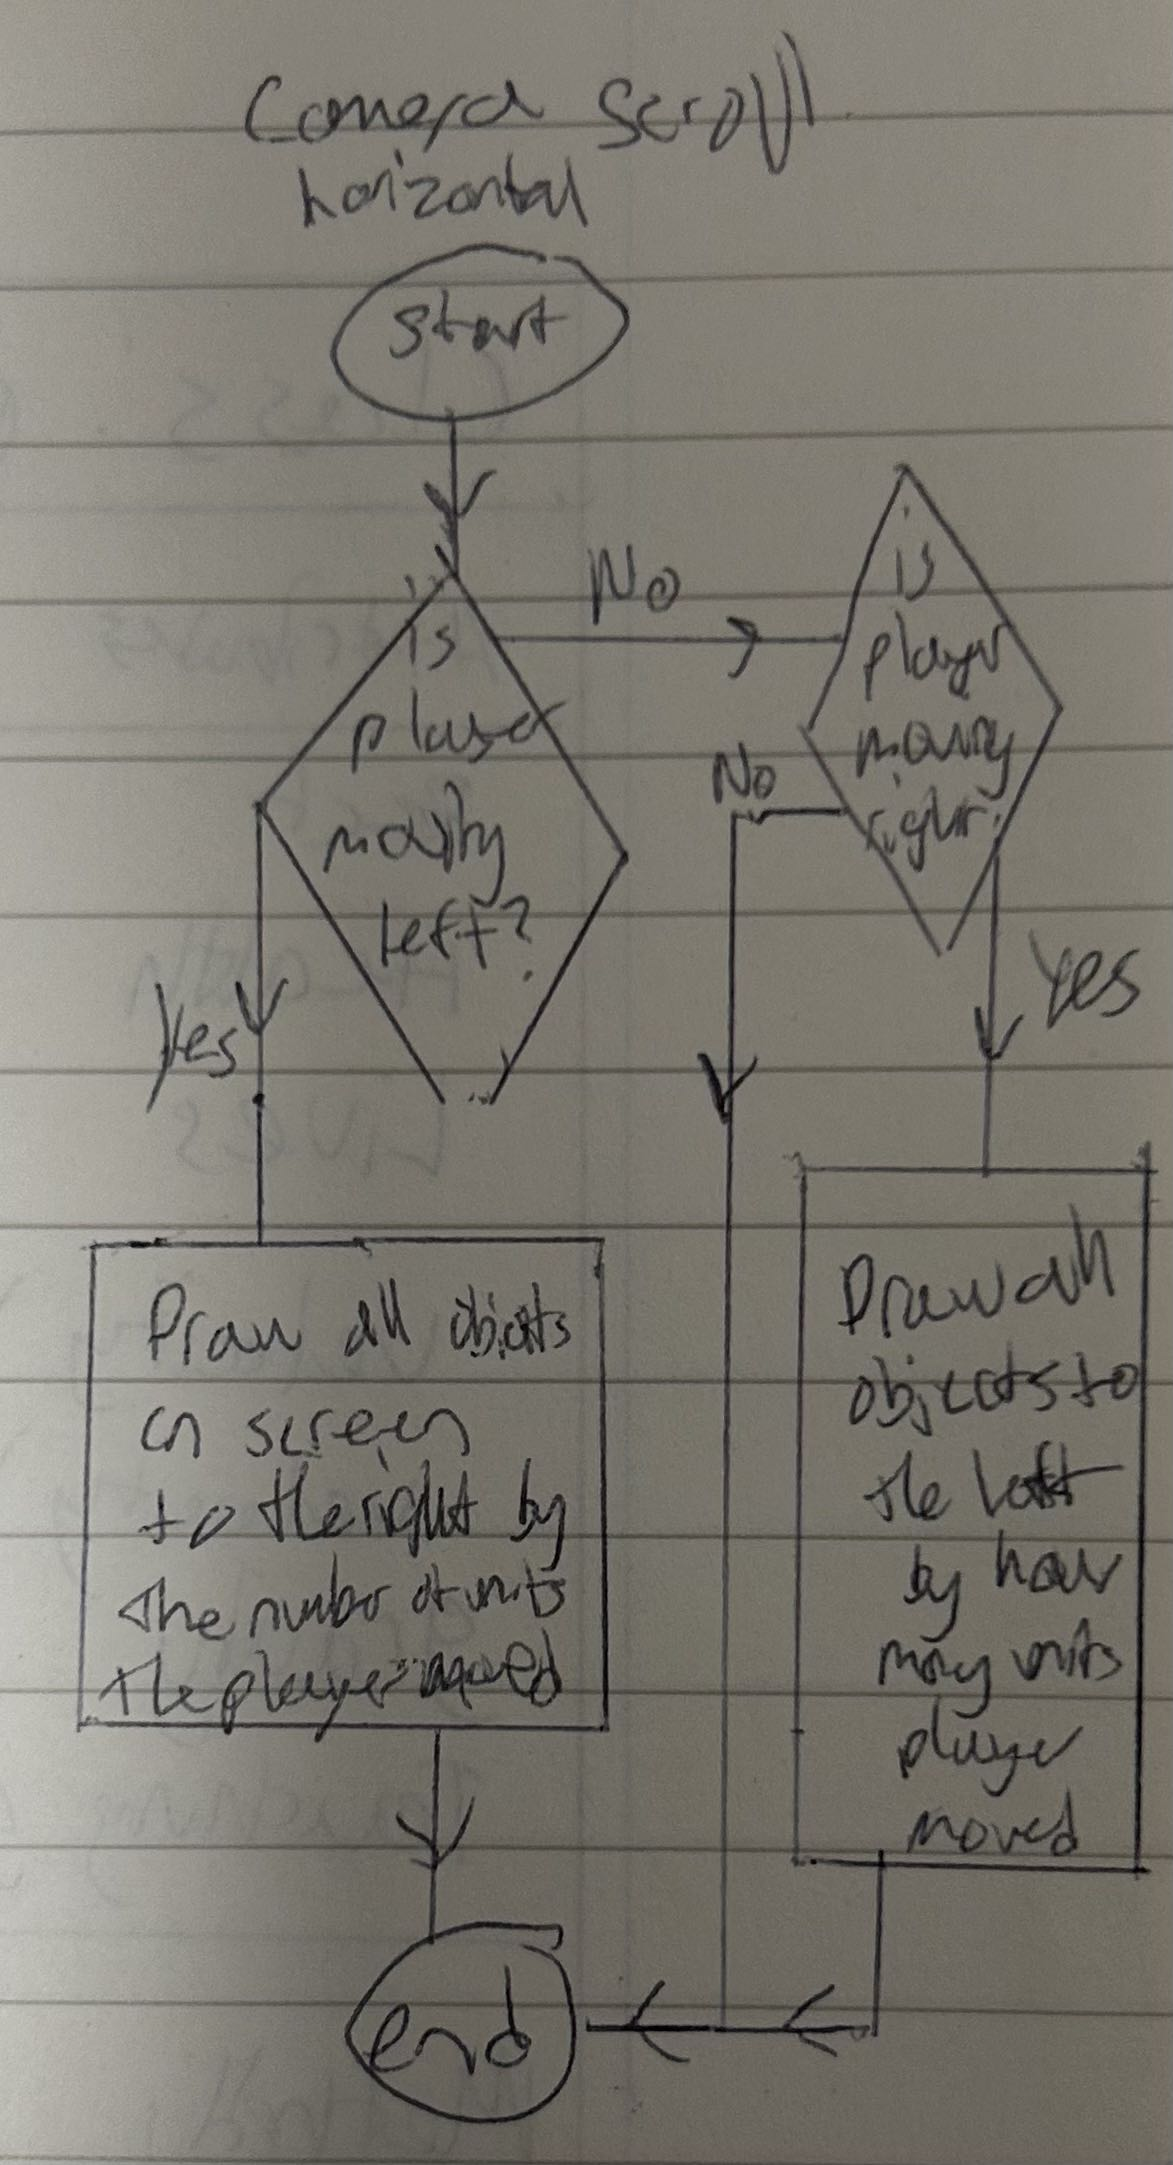 Camera Scroll
horizontal
Start
is
player
moving
left?
No
is
player
moving
right?
No
Yes
Yes
Draw all objects
on screen
to the right by
the number of units
the player moved
Draw all
objects to
the left
by how
many units
player
moved
end